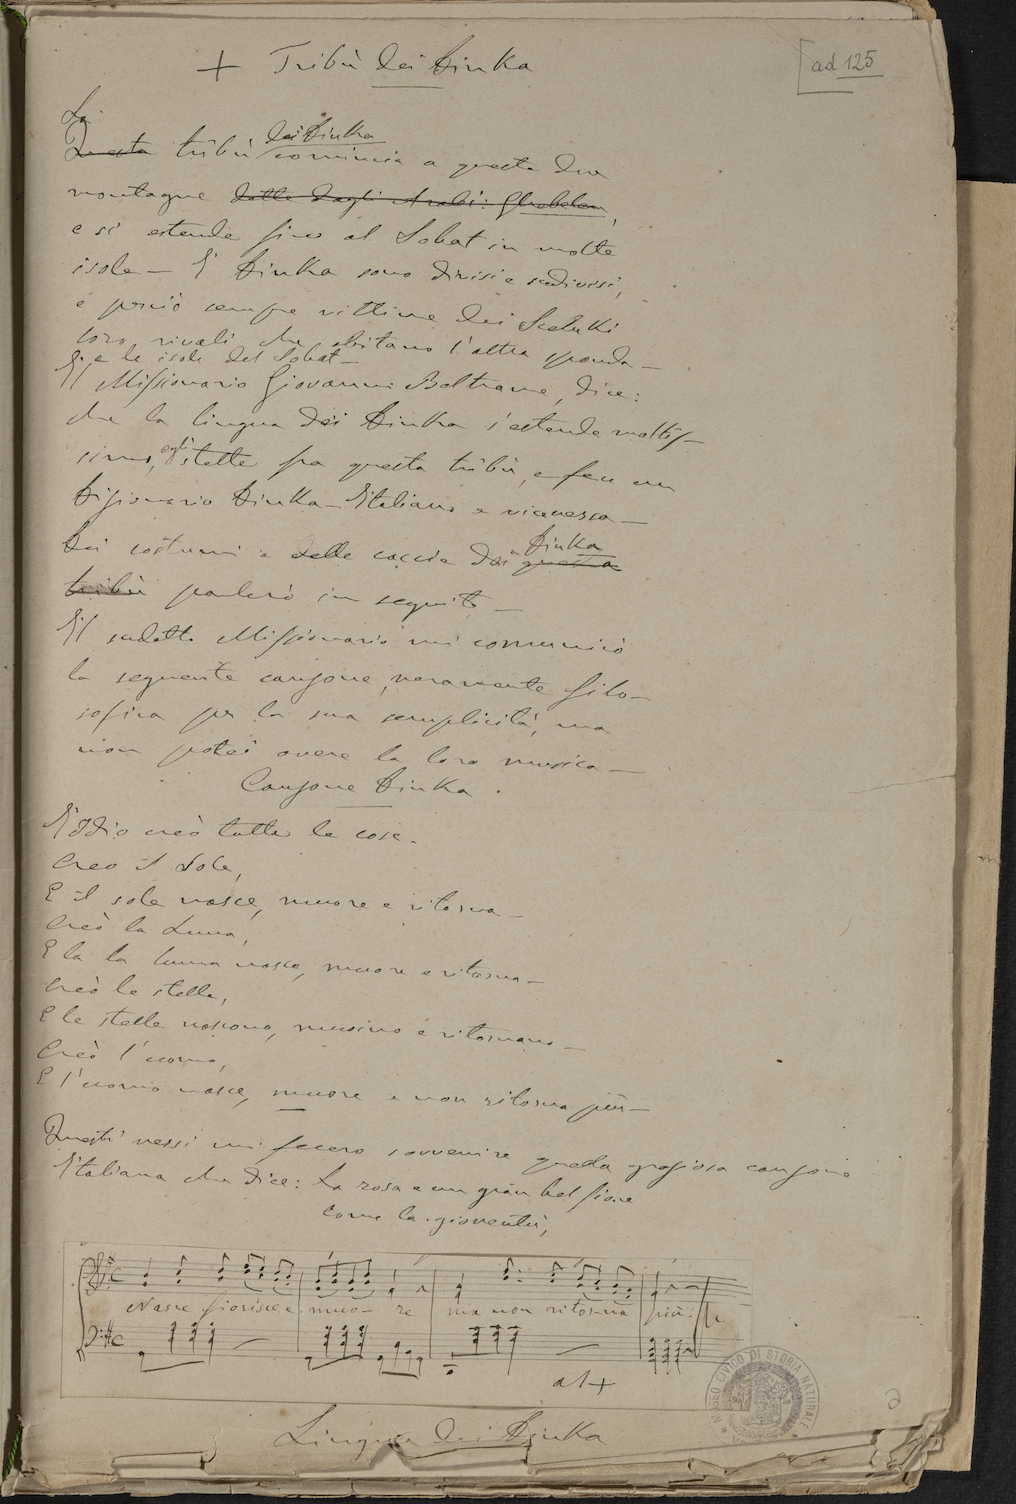 + Tribù dei Dinka
[ad 125
La
Questa tribù dei Dinka comincia a queste due
montagne dette dagli Arabi:
e si estende fino al Sobat in molte
isole — I Dinka sono divisi e sudivisi,
e perciò sempre vittime dei Sceluki
loro rivali che abitano l'altra sponda —
e le isole del Sobat —
Il Missionario Giovanni Beltrame, dice:
che la lingua dei Dinka s'estende moltis-
simo, egli stette fra questa tribù, e fece un
Dizionario Dinka-Italiano e viceversa —
Dei costumi e delle caccie dei Dinka questa
tribù parlerò in seguito —
Il sudetto Missionario mi comunicò
la seguente canzone, veramente filo-
sofica per la sua semplicità, ma
non potei avere la loro musica —
Canzone Dinka.
Iddio creò tutte le cose.
Creo il Sole,
E il sole nasce, muore e ritorna —
Creò la Luna,
E la la luna nasce, muore e ritorna —
Creò le stelle,
E le stelle nascono, muoino e ritornano —
Creò l'uomo,
E l'uomo nasce, muore e non ritorna più —
Questi versi mi fecero sovvenire quella graziosa canzone
Italiana che dice: La rosa e un gran bel fiore
come la gioventù,
Nasce fiorisce e muo- re ma non ritorna più:
al +
Lingua dei Dinka
MUSEO CIVICO DI STORIA NATURALE